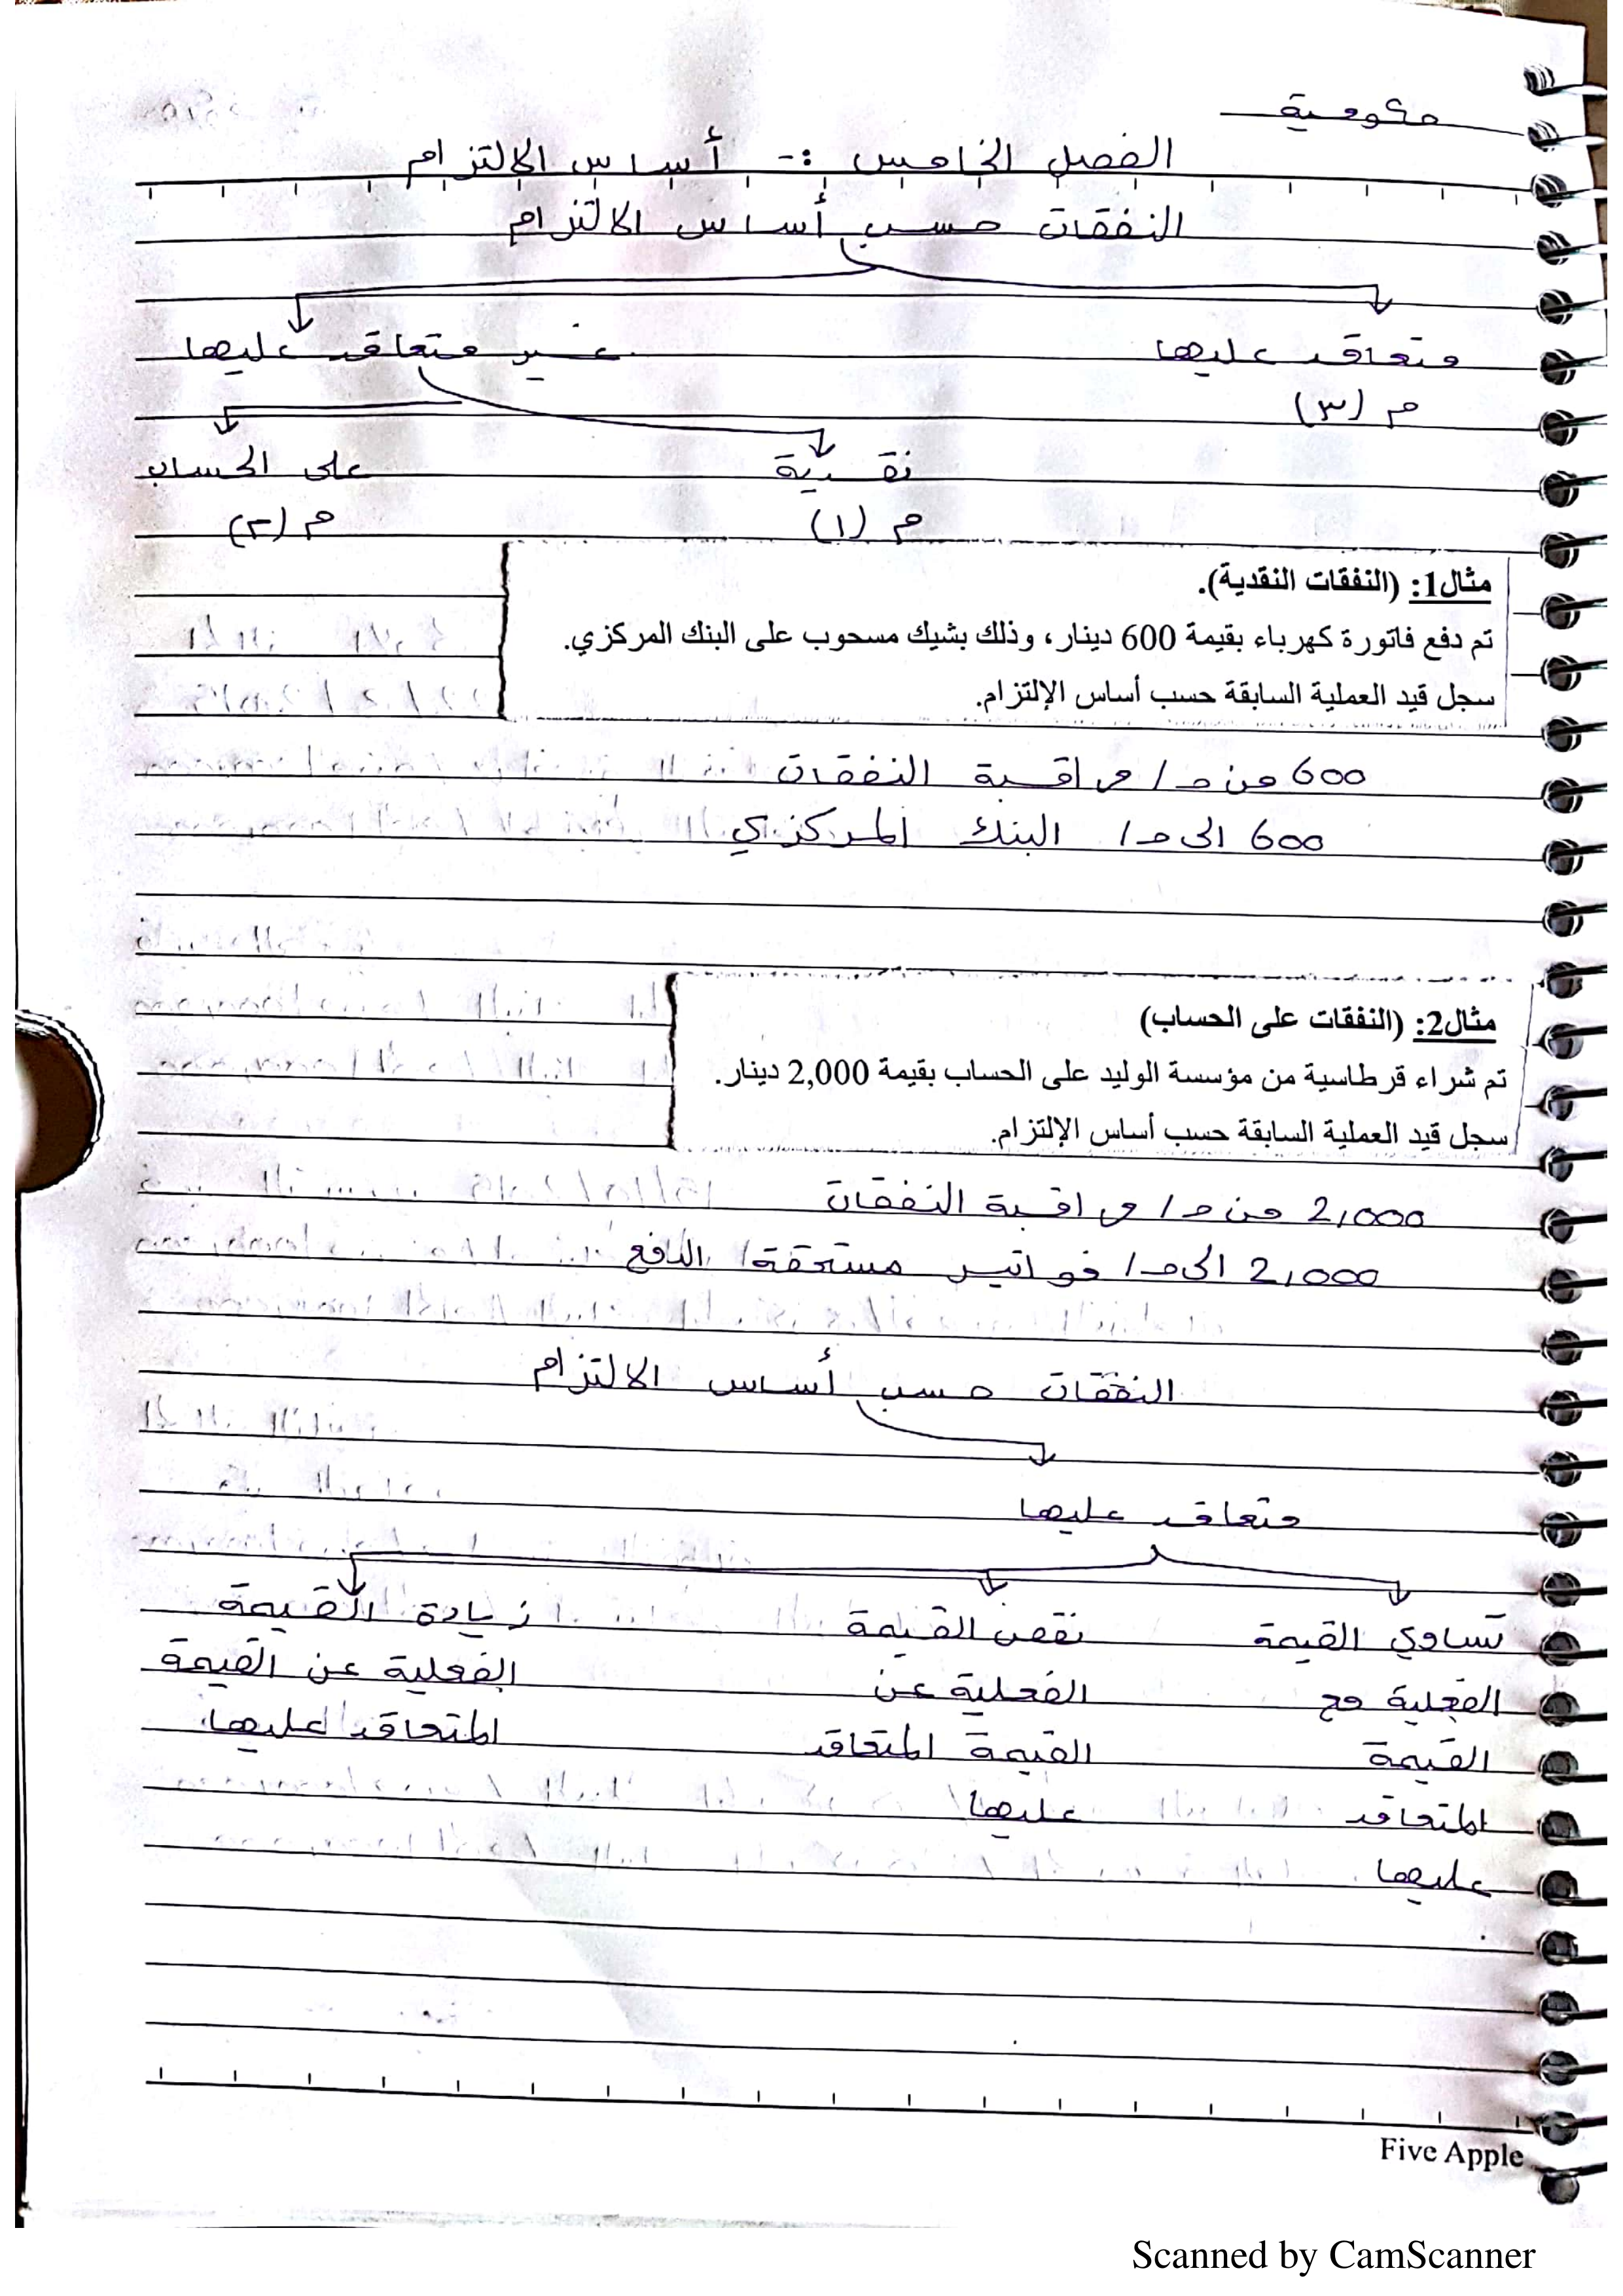 حكومية
الفصل الخامس :- أساس الالتزام
النفقات حسب أساس الالتزام
متعاقد عليها غير متعاقد عليها
م (٣)
نقدية على الحساب
م (١) م (٢)
مثال1: (النفقات النقدية).
تم دفع فاتورة كهرباء بقيمة 600 دينار، وذلك بشيك مسحوب على البنك المركزي.
سجل قيد العملية السابقة حسب أساس الإلتزام.
600 من ح/ مراقبة النفقات
600 الى ح/ البنك المركزي
مثال2: (النفقات على الحساب)
تم شراء قرطاسية من مؤسسة الوليد على الحساب بقيمة 2,000 دينار.
سجل قيد العملية السابقة حسب أساس الإلتزام.
2,000 من ح/ مراقبة النفقات
2,000 الى ح/ فواتير مستحقة الدفع
النفقات حسب أساس الالتزام
متعاقد عليها
تساوي القيمة نقص القيمة زيادة القيمة
الفعلية مع الفعلية عن الفعلية عن القيمة
القيمة القيمة المتعاقد المتعاقد عليها
المتعاقد عليها
عليها
Five Apple
Scanned by CamScanner